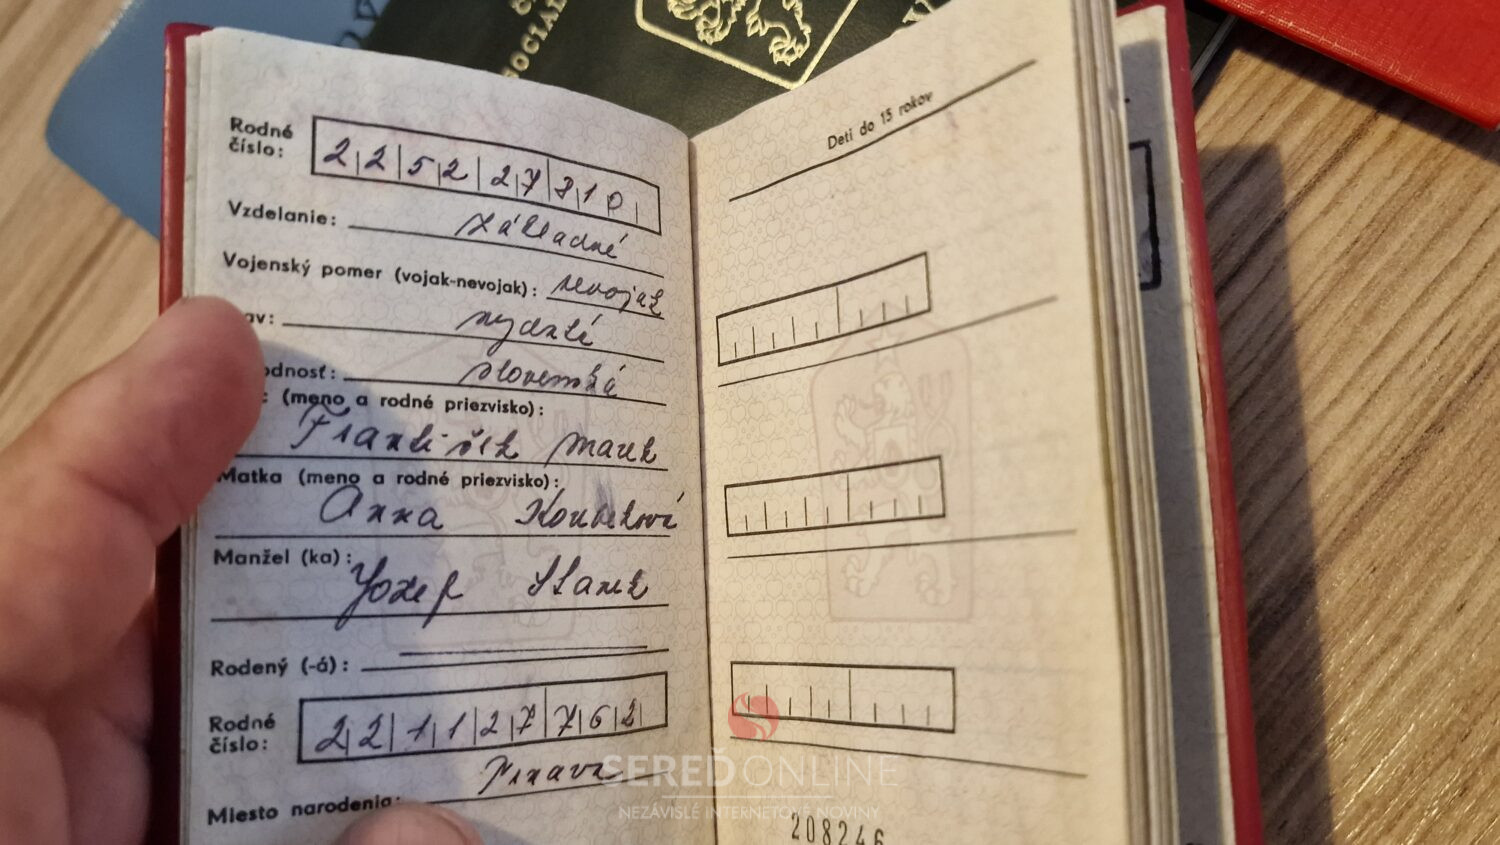 SOCIAL
Rodné
číslo:
2 2 5 2 2 7 8 1 0
Vzdelanie: základné
Vojenský pomer (vojak-nevojak): nevojak
av: vydatá
odnosť: slovenská
(meno a rodné priezvisko):
František Marek
Matka (meno a rodné priezvisko):
Anna
Manžel (ka):
Jozef Stanek
Rodený (-á):
Rodné
číslo:
2 2 1 1 2 7 7 6 2
Trnava
Miesto narodenia:
Deti do 15 rokov
208246
SEREĎ ONLINE
NEZÁVISLÉ INTERNETOVÉ NOVINY